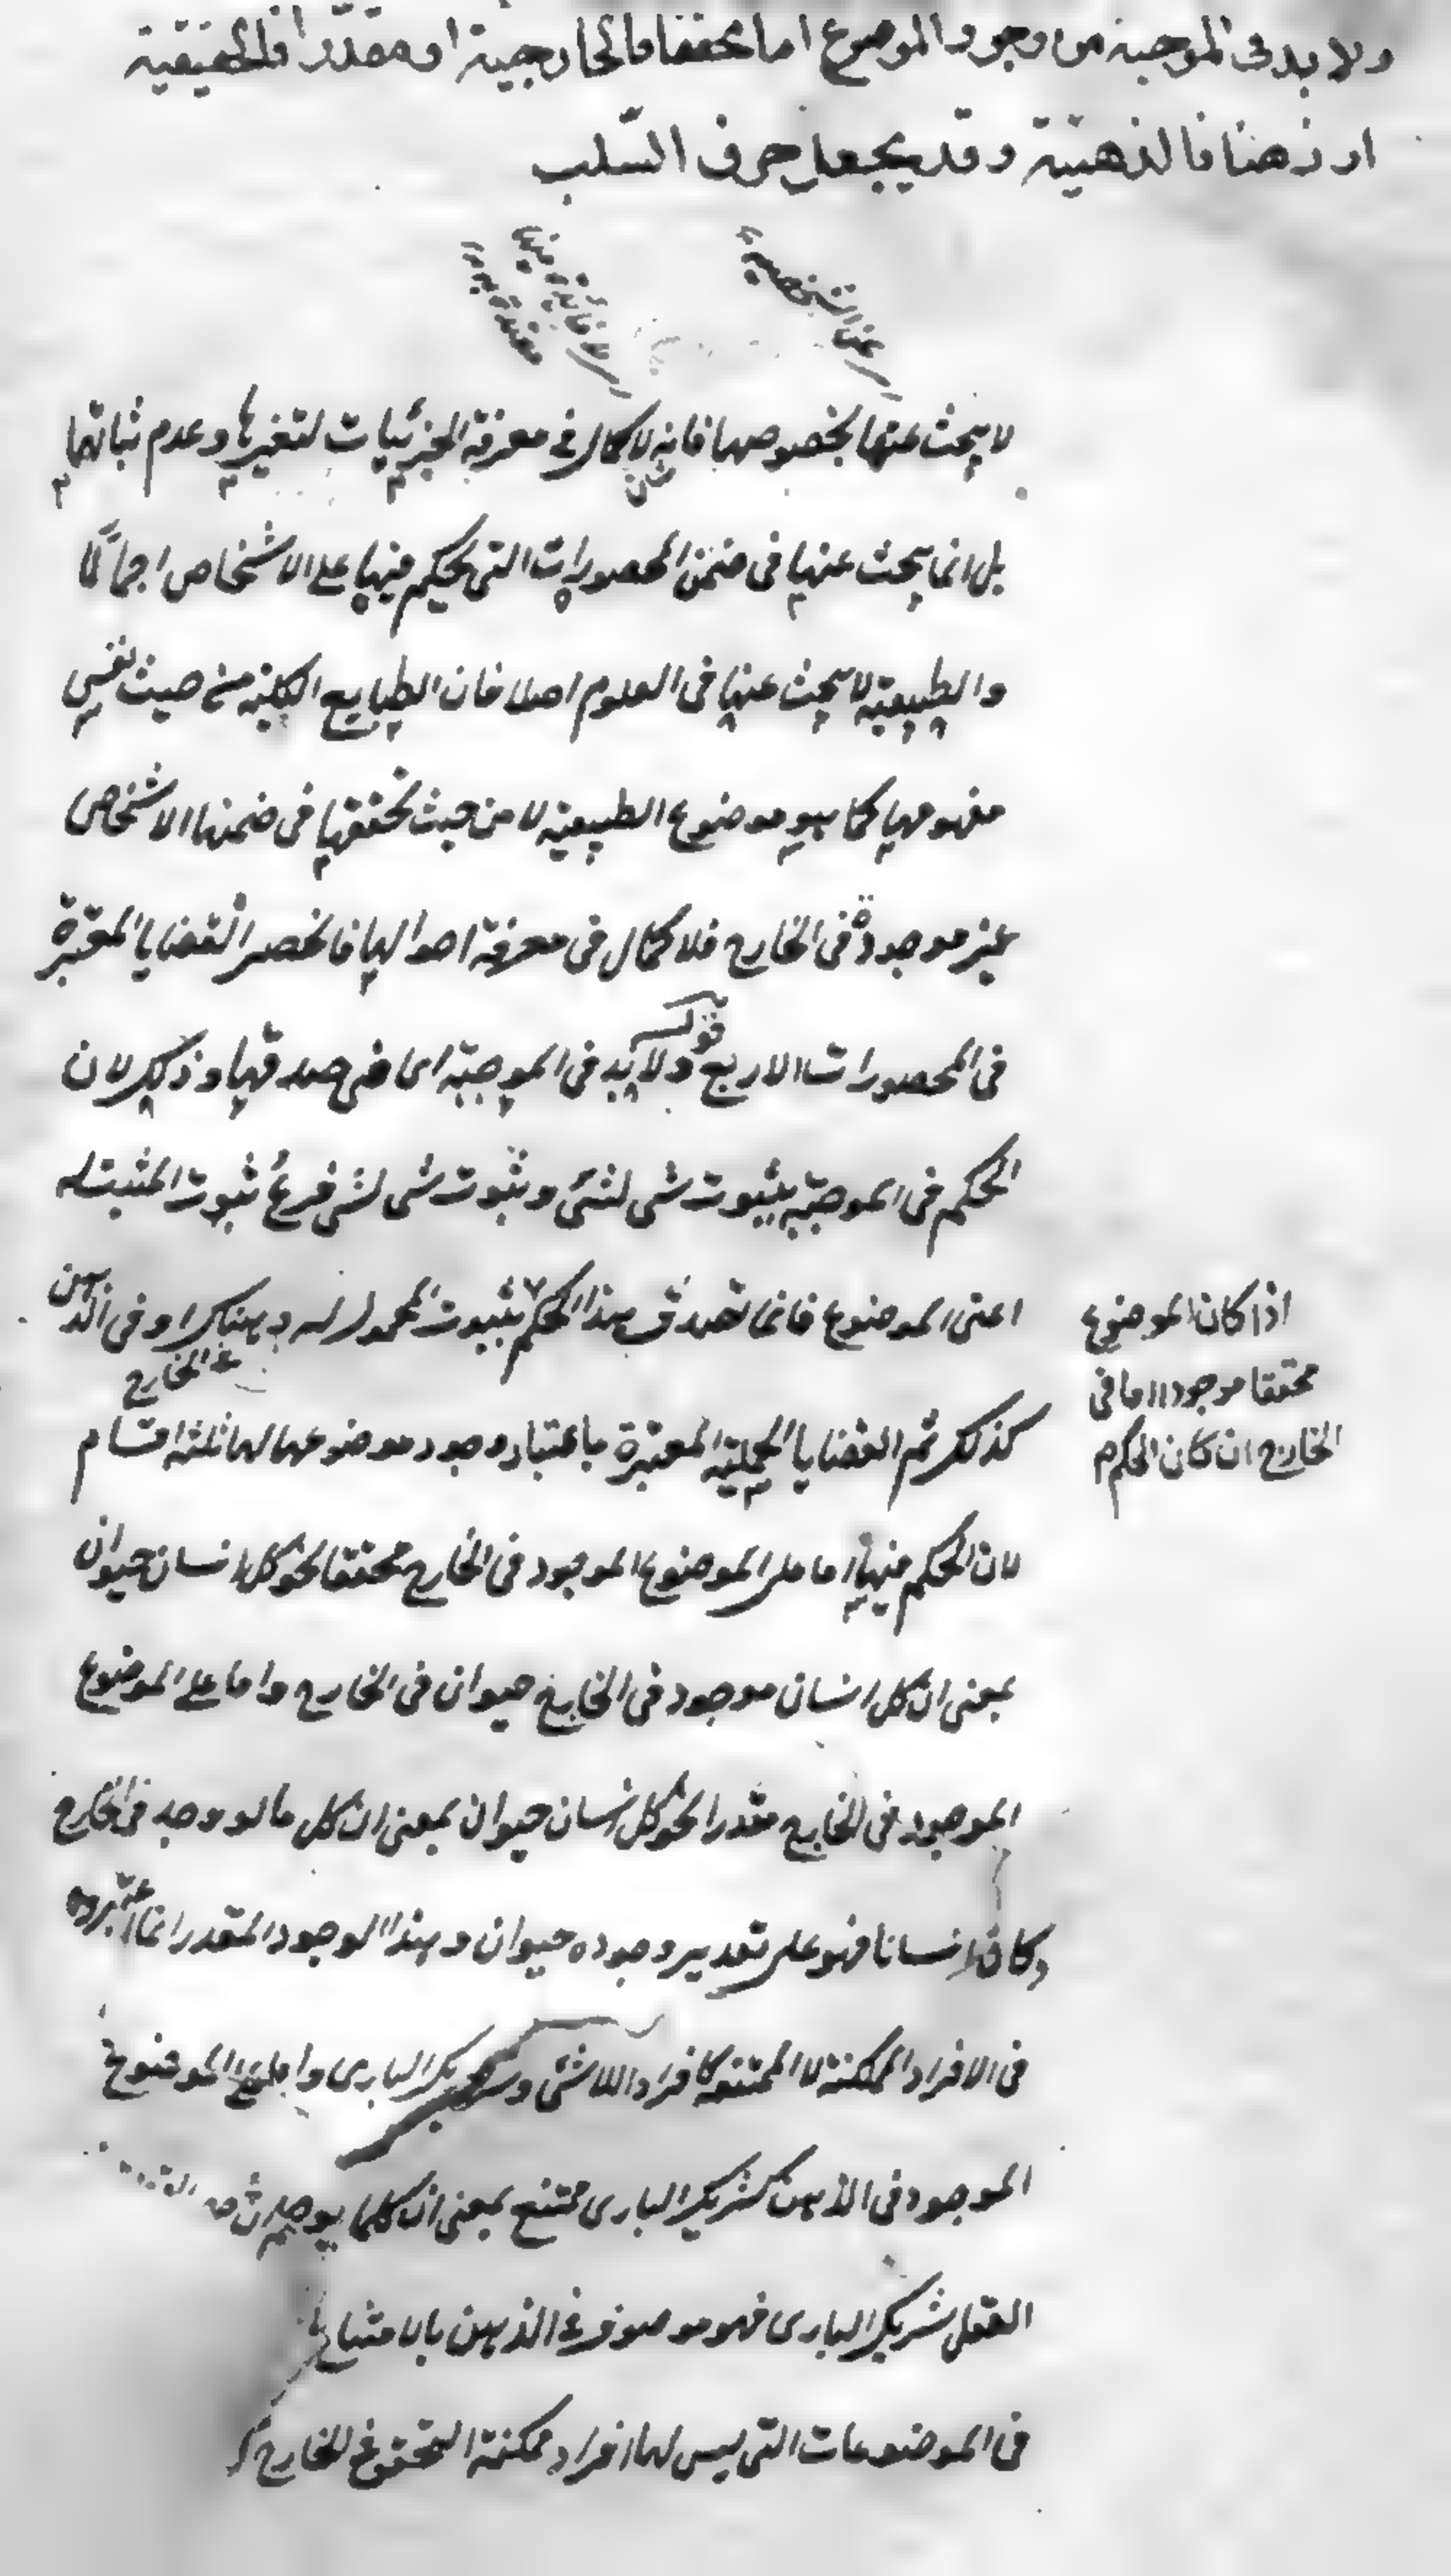 ولا بد فى الموجبة من وجود الموضوع اما محققا فالخارجية او مقدرا فالحقيقية
او ذهنا فالذهنية وقد يجعل حرف السّلب
يعنى الشخصية
لا يبحث عنها بخصوصها فانه لا كمال فى معرفة الجزئيات لتغيرها وعدم ثباتها
بل انما يبحث عنها فى ضمن المحصورات التى يحكم فيها على الاشخاص اجمالا
والطبيعية لا يبحث عنها فى العلوم اصلا فان الطبايع الكلية من حيث نفس
مفهومها كما هو موضوع الطبيعية لا من حيث تحققها فى ضمنها الاشخاص
غير موجودة فى الخارج فلا كمال فى معرفة احوالها فانحصر القضايا المعتبرة
فى المحصورات الاربع قوله ولا بد فى الموجبة اى فى صدقها وذلك لان
الحكم فى الموجبة بثبوت شى لشئ وثبوت شى لشى فرع ثبوت المثبت له
اعنى الموضوع فانما تصدق هذا الحكم بثبوت المحمول له هناك او فى الذهن
فى الخارج
اذا كان الموضوع
محققا موجودا اما فى
الخارج ان كان الحكم
كذلك ثم القضايا الحملية المعتبرة باعتبار وجود موضوعها لها ثلثة اقسام
لان الحكم فيها اما على الموضوع الموجود فى الخارج محققا نحو كل انسان حيوان
بمعنى ان كل انسان موجود فى الخارج حيوان فى الخارج واما على الموضوع
الموجود فى الخارج مقدرا نحو كل انسان حيوان بمعنى ان كل ما لو وجد فى الخارج
وكان انسانا فهو على تقدير وجوده حيوان وهذا الوجود المقدر انما اعتبروه
فى الافراد الممكنة لا الممتنعة كافراد اللاشئ وشريك البارى واما على الموضوع
الموجود فى الذهن كشريك البارى ممتنع بمعنى ان كلما يوجد
العقل شريك البارى فهو موصوف فى الذهن بالامتناع
فى الموضوعات التى ليس لها افراد ممكنة التحقق فى الخارج